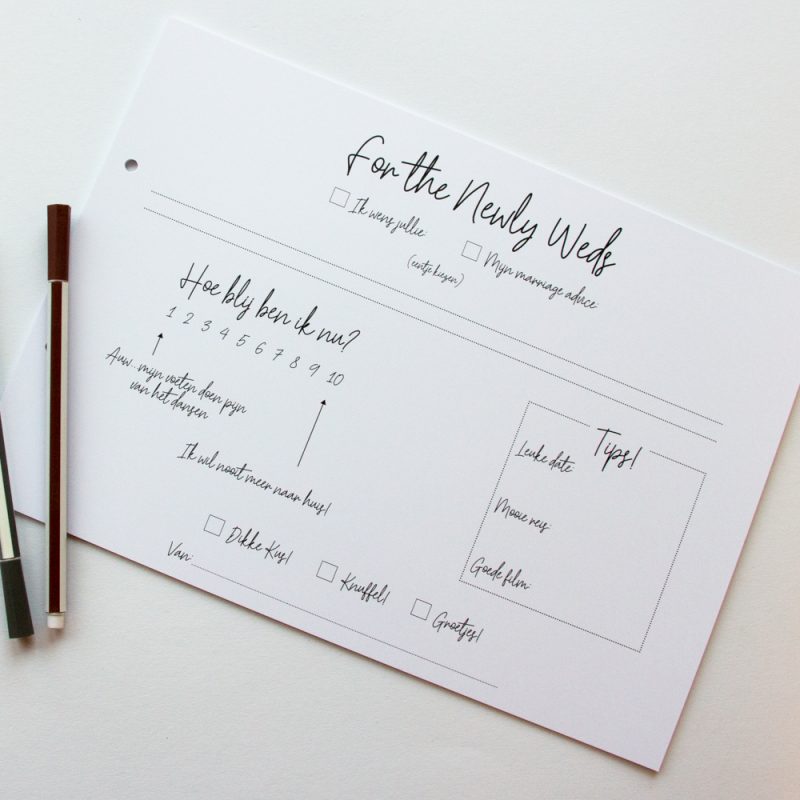 For the Newly Weds
Ik wens jullie:
(eentje kiezen)
Mijn marriage advice:
Hoe blij ben ik nu?
1 2 3 4 5 6 7 8 9 10
Auw.. mijn voeten doen pijn
van het dansen
Ik wil nooit meer naar huis!
Tips!
Leuke date:
Mooie reis:
Goede film:
Dikke Kus!
Knuffel!
Groetjes!
Van: